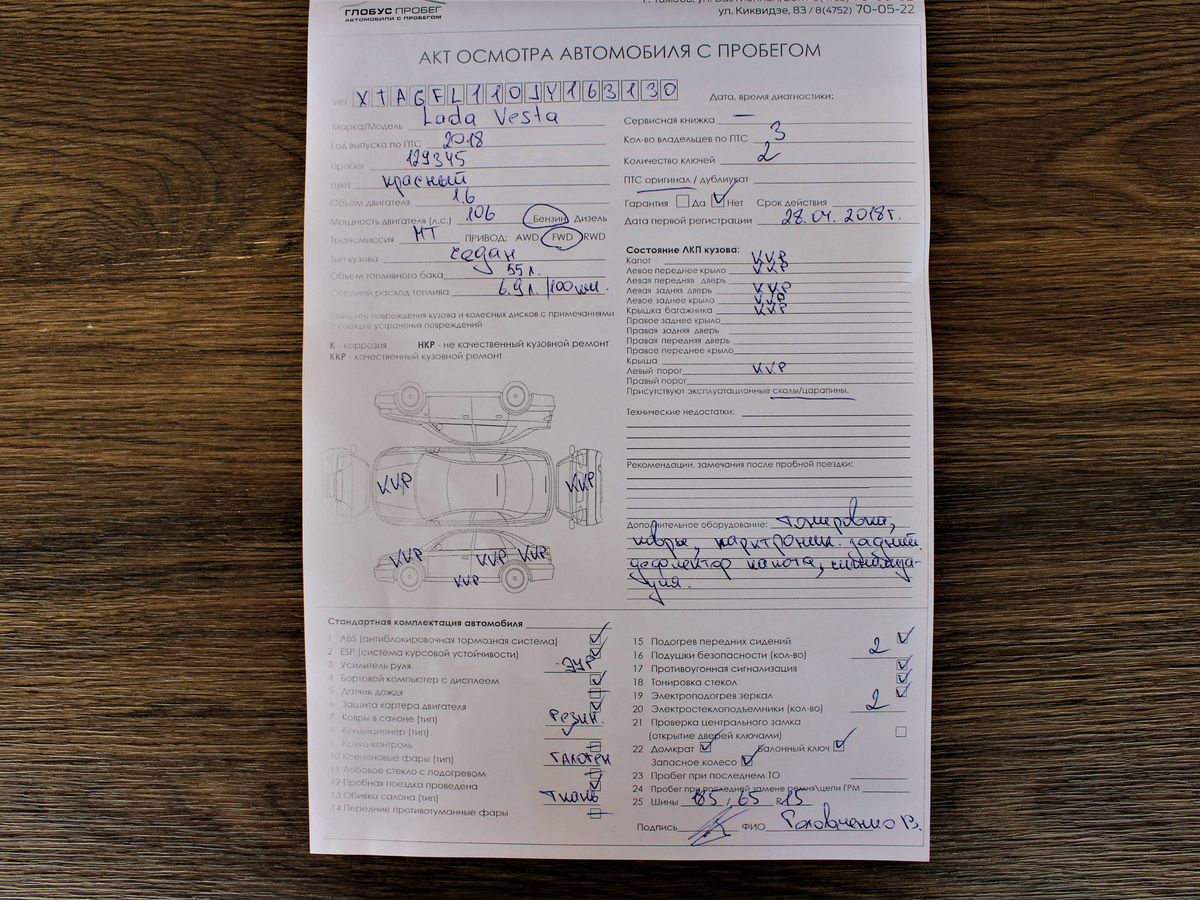 ГЛОБУС ПРОБЕГ
АВТОМОБИЛИ С ПРОБЕГОМ
ул. Киквидзе, 83 / 8(4752) 70-05-22
АКТ ОСМОТРА АВТОМОБИЛЯ С ПРОБЕГОМ
VIN XTAGFL110JY163130
Марка/Модель Lada Vesta
Год выпуска по ПТС 2018
Пробег 129345
Цвет красный
Объем двигателя 1.6
Мощность двигателя (л.с.) 106 Бензин Дизель
Трансмиссия МТ ПРИВОД: AWD FWD RWD
Тип кузова седан
Объем топливного бака 55 л.
Средний расход топлива 6.9 л./100 км.
Опишите повреждения кузова и колесных дисков с примечаниями
о порядке устранения повреждений
К - коррозия НКР - не качественный кузовной ремонт
ККР - качественный кузовной ремонт
ККР ККР
ККР ККР ККР
ККР
Дата, время диагностики:
Сервисная книжка —
Кол-во владельцев по ПТС 3
Количество ключей 2
ПТС оригинал / дубликат
Гарантия Да Нет Срок действия
Дата первой регистрации 28.04.2018г.
Состояние ЛКП кузова:
Капот ККР
Левое переднее крыло ККР
Левая передняя дверь
Левая задняя дверь ККР
Левое заднее крыло ККР
Крышка багажника ККР
Правое заднее крыло
Правая задняя дверь
Правая передняя дверь
Правое переднее крыло
Крыша
Левый порог ККР
Правый порог
Присутствуют эксплуатационные сколы/царапины.
Технические недостатки:
Рекомендации, замечания после пробной поездки:
Дополнительное оборудование: тонировка,
ковры, парктроник задний
дефлектор капота, сигнализа-
ция.
Стандартная комплектация автомобиля
1 ABS (антиблокировочная тормозная система)
2 ESP (система курсовой устойчивости)
3 Усилитель руля ЭУР
4 Бортовой компьютер с дисплеем
5 Датчик дождя
6 Защита картера двигателя
7 Ковры в салоне (тип) Резин.
8 Кондиционер (тип)
9 Круиз-контроль
10 Ксеноновые фары (тип) галоген
11 Лобовое стекло с подогревом
12 Пробная поездка проведена
13 Обивка салона (тип) Ткань
14 Передние противотуманные фары
15 Подогрев передних сидений
16 Подушки безопасности (кол-во) 2
17 Противоугонная сигнализация
18 Тонировка стекол
19 Электроподогрев зеркал
20 Электростеклоподъемники (кол-во) 2
21 Проверка центрального замка
(открытие дверей ключами)
22 Домкрат Балонный ключ
Запасное колесо
23 Пробег при последнем ТО
24 Пробег при последней замене ремня\цепи ГРМ
25 Шины 185, 65 R15
Подпись ФИО